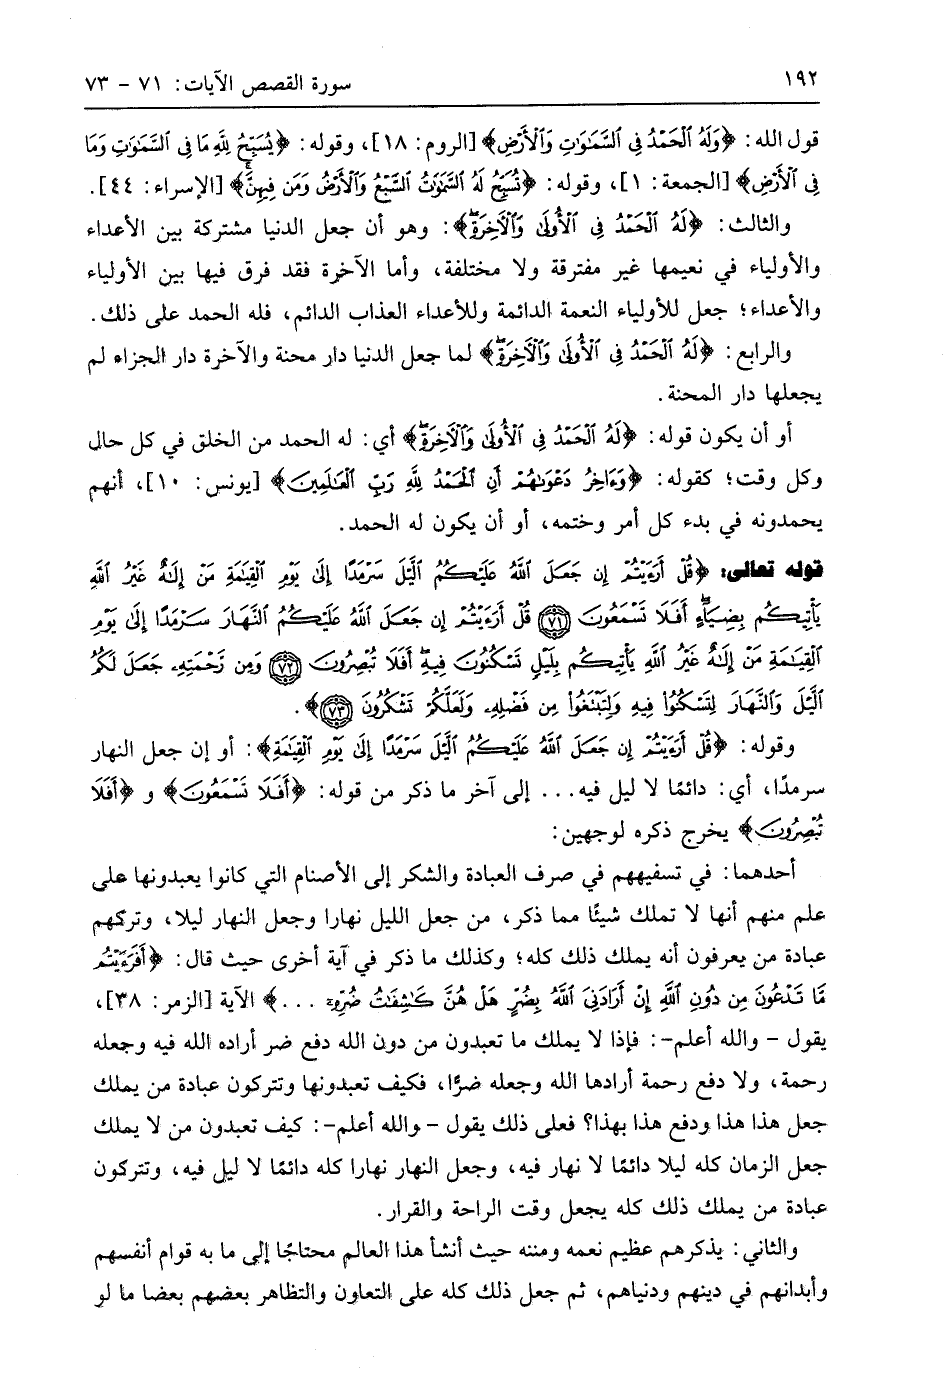 ١٩٢ سورة القصص الآيات: ٧١ - ٧٣
قول الله: ﴿وَلَهُ الْحَمْدُ فِي السَّمَٰوَٰتِ وَالْأَرْضِ﴾ [الروم: ١٨]، وقوله: ﴿يُسَبِّحُ لِلَّهِ مَا فِي السَّمَٰوَٰتِ وَمَا
فِي الْأَرْضِ﴾ [الجمعة: ١]، وقوله: ﴿تُسَبِّحُ لَهُ السَّمَٰوَٰتُ السَّبْعُ وَالْأَرْضُ وَمَن فِيهِنَّ﴾ [الإسراء: ٤٤].
والثالث: ﴿لَهُ الْحَمْدُ فِي الْأُولَىٰ وَالْآخِرَةِ﴾: وهو أن جعل الدنيا مشتركة بين الأعداء
والأولياء في نعيمها غير مفترقة ولا مختلفة، وأما الآخرة فقد فرق فيها بين الأولياء
والأعداء؛ جعل للأولياء النعمة الدائمة وللأعداء العذاب الدائم، فله الحمد على ذلك.
والرابع: ﴿لَهُ الْحَمْدُ فِي الْأُولَىٰ وَالْآخِرَةِ﴾ لما جعل الدنيا دار محنة والآخرة دار الجزاء لم
يجعلها دار المحنة.
أو أن يكون قوله: ﴿لَهُ الْحَمْدُ فِي الْأُولَىٰ وَالْآخِرَةِ﴾ أي: له الحمد من الخلق في كل حال
وكل وقت؛ كقوله: ﴿وَءَاخِرُ دَعْوَىٰهُمْ أَنِ الْحَمْدُ لِلَّهِ رَبِّ الْعَٰلَمِينَ﴾ [يونس: ١٠]، أنهم
يحمدونه في بدء كل أمر وختمه، أو أن يكون له الحمد.
قوله تعالى: ﴿قُلْ أَرَءَيْتُمْ إِن جَعَلَ اللَّهُ عَلَيْكُمُ الَّيْلَ سَرْمَدًا إِلَىٰ يَوْمِ الْقِيَٰمَةِ مَنْ إِلَٰهٌ غَيْرُ اللَّهِ
يَأْتِيكُم بِضِيَآءٍ أَفَلَا تَسْمَعُونَ ﴿٧١﴾ قُلْ أَرَءَيْتُمْ إِن جَعَلَ اللَّهُ عَلَيْكُمُ النَّهَارَ سَرْمَدًا إِلَىٰ يَوْمِ
الْقِيَٰمَةِ مَنْ إِلَٰهٌ غَيْرُ اللَّهِ يَأْتِيكُم بِلَيْلٍ تَسْكُنُونَ فِيهِ أَفَلَا تُبْصِرُونَ ﴿٧٢﴾ وَمِن رَّحْمَتِهِ جَعَلَ لَكُمُ
الَّيْلَ وَالنَّهَارَ لِتَسْكُنُوا فِيهِ وَلِتَبْتَغُوا مِن فَضْلِهِ وَلَعَلَّكُمْ تَشْكُرُونَ ﴿٧٣﴾﴾.
وقوله: ﴿قُلْ أَرَءَيْتُمْ إِن جَعَلَ اللَّهُ عَلَيْكُمُ الَّيْلَ سَرْمَدًا إِلَىٰ يَوْمِ الْقِيَٰمَةِ﴾: أو إن جعل النهار
سرمدًا، أي: دائمًا لا ليل فيه... إلى آخر ما ذكر من قوله: ﴿أَفَلَا تَسْمَعُونَ﴾ و ﴿أَفَلَا
تُبْصِرُونَ﴾ يخرج ذكره لوجهين:
أحدهما: في تسفيههم في صرف العبادة والشكر إلى الأصنام التي كانوا يعبدونها على
علم منهم أنها لا تملك شيئًا مما ذكر، من جعل الليل نهارا وجعل النهار ليلا، وتركهم
عبادة من يعرفون أنه يملك ذلك كله؛ وكذلك ما ذكر في آية أخرى حيث قال: ﴿أَفَرَءَيْتُم
مَّا تَدْعُونَ مِن دُونِ اللَّهِ إِنْ أَرَادَنِيَ اللَّهُ بِضُرٍّ هَلْ هُنَّ كَٰشِفَٰتُ ضُرِّهِ ...﴾ الآية [الزمر: ٣٨]،
يقول - والله أعلم-: فإذا لا يملك ما تعبدون من دون الله دفع ضر أراده الله فيه وجعله
رحمة، ولا دفع رحمة أرادها الله وجعله ضرًّا، فكيف تعبدونها وتتركون عبادة من يملك
جعل هذا هذا ودفع هذا بهذا؟ فعلى ذلك يقول - والله أعلم-: كيف تعبدون من لا يملك
جعل الزمان كله ليلا دائمًا لا نهار فيه، وجعل النهار نهارا كله دائمًا لا ليل فيه، وتتركون
عبادة من يملك ذلك كله يجعل وقت الراحة والقرار.
والثاني: يذكرهم عظيم نعمه ومننه حيث أنشأ هذا العالم محتاجًا إلى ما به قوام أنفسهم
وأبدانهم في دينهم ودنياهم، ثم جعل ذلك كله على التعاون والتظاهر بعضهم بعضا ما لو